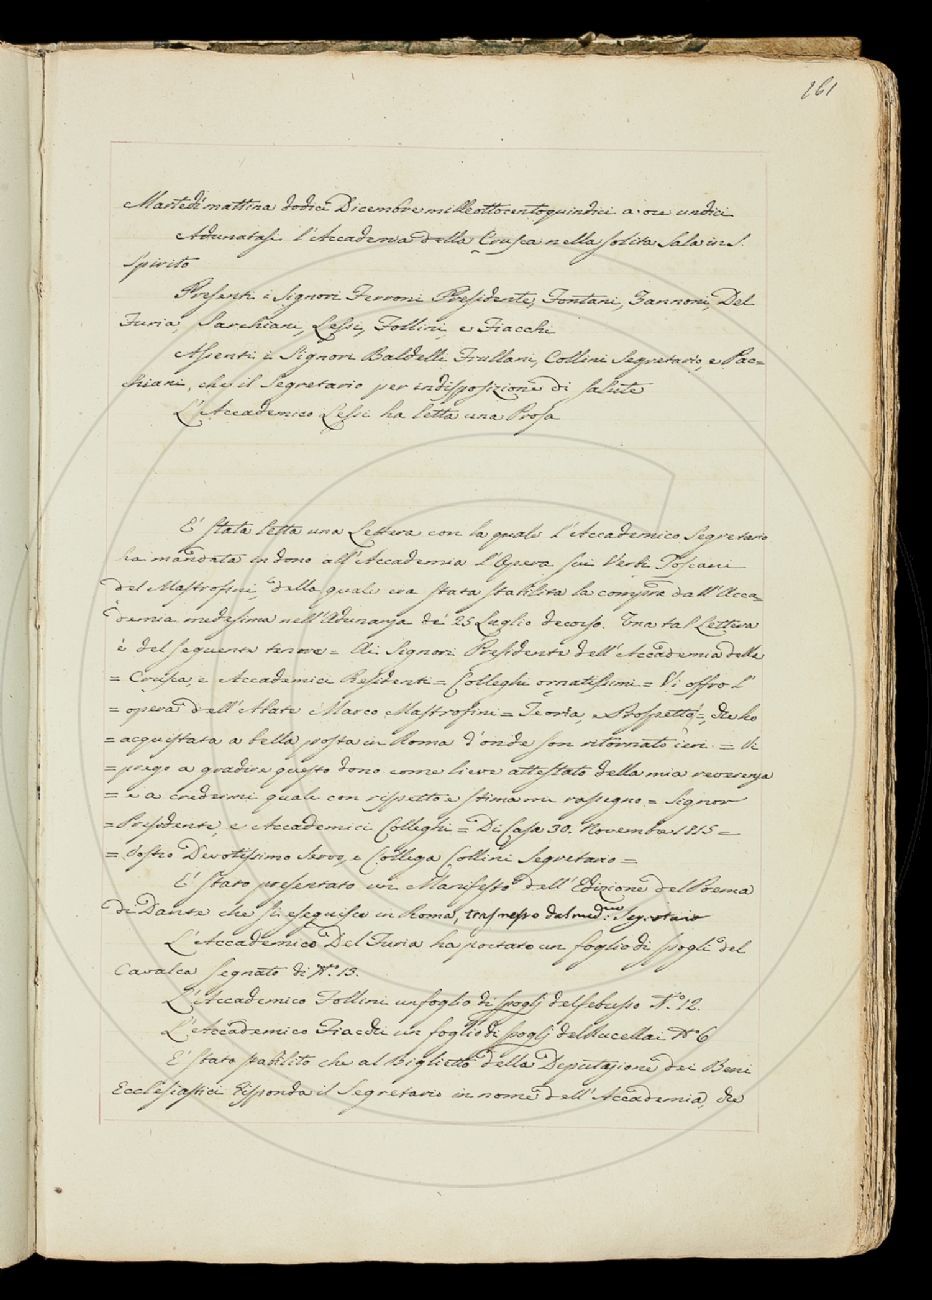 161
Martedì mattina dodici Dicembre milleottocentoquindici a ore undici
Adunatasi l'Accademia della Crusca nella solita Sala in S.
Spirito
Presenti i Signori Ferroni Presidente, Fontani, Zannoni, Del
Furia, Sarchiani, Lessi, Follini, e Fiacchi
Assenti i Signori Baldelli Frullani, Collini Segretario, e Pac=
chiani, che il Segretario per indisposizione di salute
L'Accademico Lessi ha letta una Prosa
E' stata letta una Lettera con la quale l'Accademico Segretario
ha mandata in dono all'Accademia l'Opera sui Verbi Toscani
del Mastrofini, della quale era stata stabilita la compra dall'Acca=
demia medesima nell'Adunanza de' 25 Luglio decorso. Una tal Lettera
è del seguente tenore = Ai Signori Presidente dell'Accademia della
= Crusca, e Accademici Residenti = Colleghi ornatissimi = Vi offro l'
= opera dell'Abate Marco Mastrofini = Teoria, e Prospetto =, che ho
= acquistata a bella posta in Roma d'onde son ritornato ieri = Vi
= prego a gradire questo dono come lieve attestato della mia reverenza
= e a credermi quale con rispetto e stima mi rassegno = Signor
= Presidente, e Accademici Colleghi = Di Casa 30. Novembre 1815 =
= Vostro Devotissimo Servo, e Collega Collini Segretario =
E' stato presentato un Manifesto dell'Edizione del Poema
di Dante che si eseguisce in Roma, trasmesso dal med.mo Segretario
L'Accademico Del Furia ha portato un foglio di spogli del
Cavalca segnato di N.o 13.
L'Accademico Follini un foglio di spogli del N.o 12.
L'Accademico Fiacchi un foglio di spogli del Rucellai N.o 6
E' stato stabilito che al Biglietto della Deputazione dei Beni
Ecclesiastici risponda il Segretario in nome dell'Accademia, che